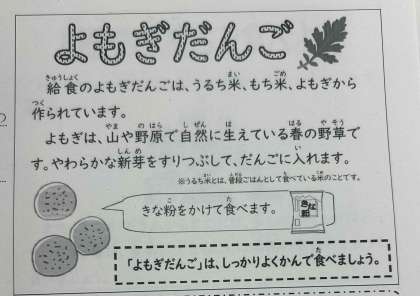 よもぎだんご
給食のよもぎだんごは、うるち米、もち米、よもぎから
作られています。
よもぎは、山や野原で自然に生えている春の野草で
す。やわらかな新芽をすりつぶして、だんごに入れます。
※うるち米とは、普段ごはんとして食べている米のことです。
きな粉をかけて食べます。
きな粉
「よもぎだんご」は、しっかりよくかんで食べましょう。